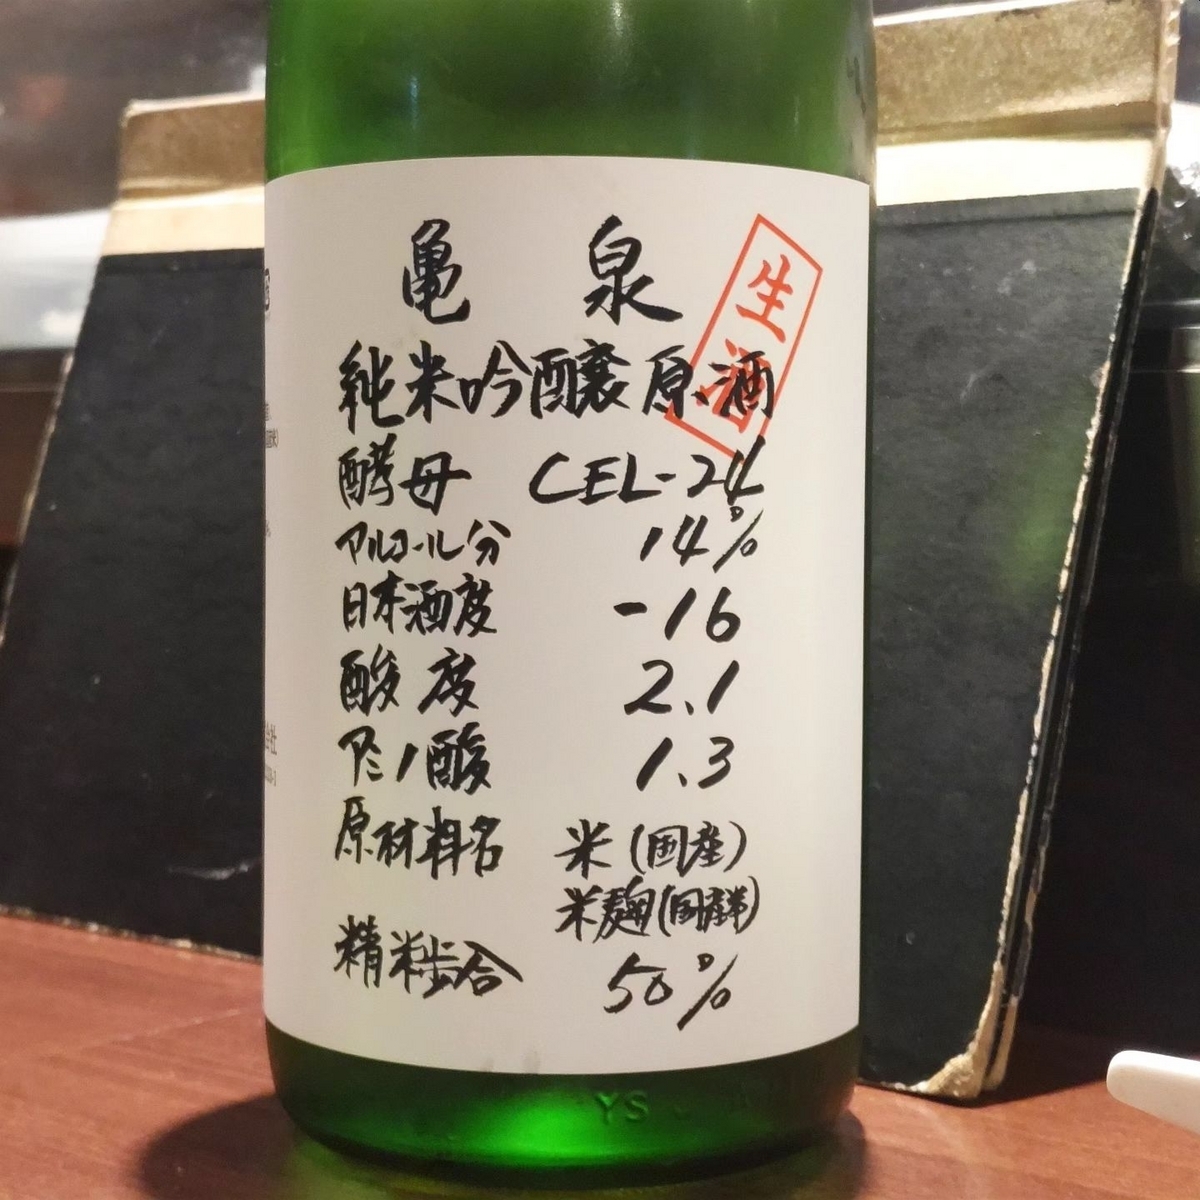 亀泉
生酒
純米吟醸原酒
酵母 CEL-24
アルコール分 14%
日本酒度 -16
酸度 2.1
アミノ酸 1.3
原材料名 米(国産)
米麹(国産米)
精米歩合 50%
YS